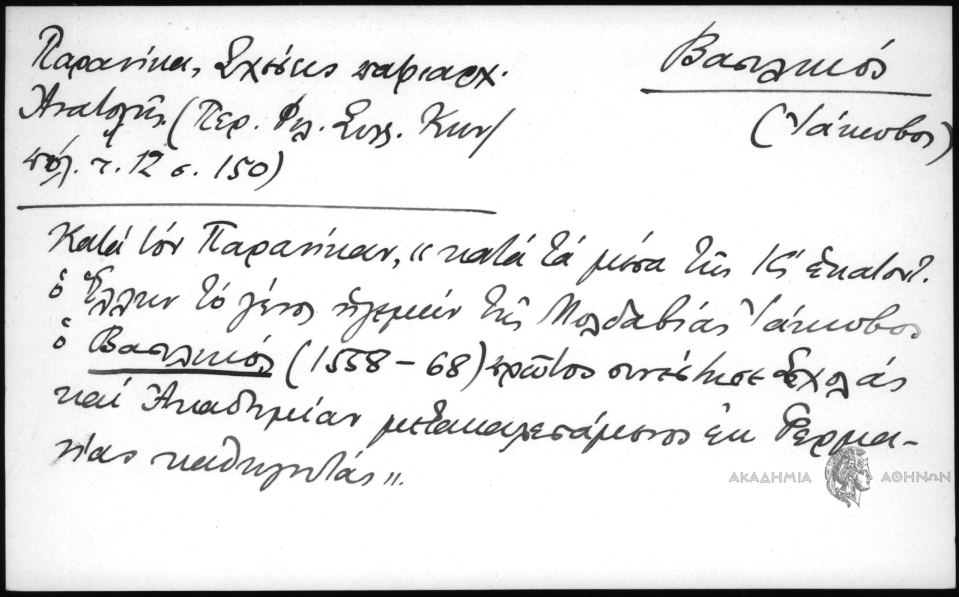 Παρανίκα, Σχέσεις πατριαρχ.
Ἀνατολῆς (Περ. Φιλ. Συλ. Κων/
πόλ. τ. 12 σ. 150)
Βασιλικός
(Ἰάκωβος)
Κατά τόν Παρανίκαν, "κατά τά μέσα τῆς Ις' ἑκατοντ.
ὁ Ἕλλην τό γένος ἡγεμών τῆς Μολδαβίας Ἰάκωβος
ὁ Βασιλικός (1558 – 68) πρῶτος συνέστησε σχολάς
καί Ἀκαδημίαν μετακαλεσάμενος ἐκ Γερμα-
νίας καθηγητάς".
ΑΚΑΔΗΜΙΑ ΑΘΗΝΩΝ